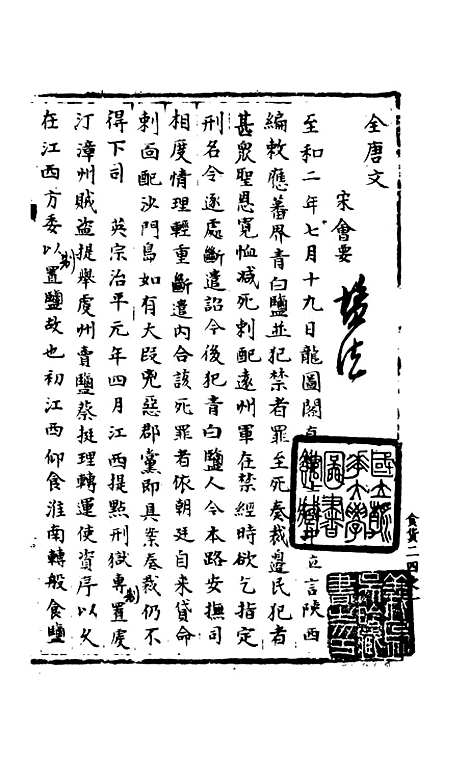 全唐文
宋會要
鹽法
至和二年七月十九日龍圖閣直 言陝西
編敕應蕃界青白鹽並犯禁者罪至死奏裁邊民犯者
甚衆聖恩寬恤减死刺配遠州軍在禁經時欲乞指定
刑名令逐處斷遣詔今後犯青白鹽人令本路安撫司
相度情理輕重斷遣内合該死罪者依朝廷自来貸命
刺面配沙門島如有大段兇惡群黨即具案奏裁仍不
得下司 英宗治平元年四月江西提點刑獄專置虔
汀漳州賊盗提舉虔州賣鹽蔡挺理轉運使資序以久
在江西方委以置鹽故也初江西仰食淮南轉般食鹽
劃
劃
食貨二四之一
國立北平大學圖書館藏